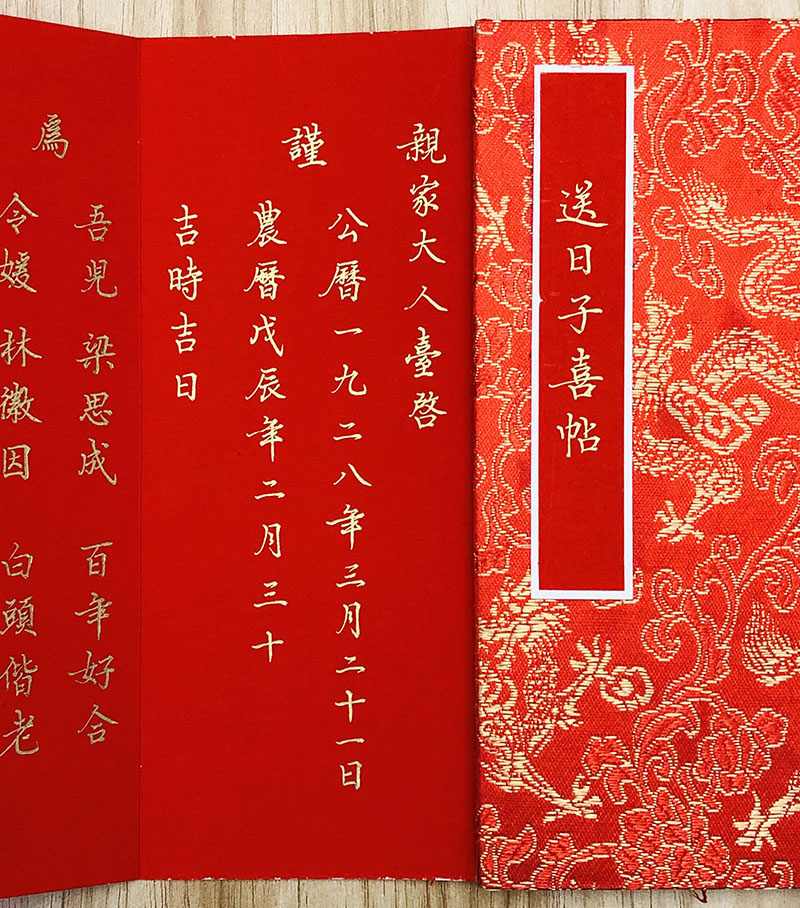 送日子喜帖
親家大人臺啓
謹
公曆一九二八年三月二十一日
農曆戊辰年二月三十
吉時吉日
為
吾兒 梁思成 百年好合
令嫒 林徽因 白頭偕老